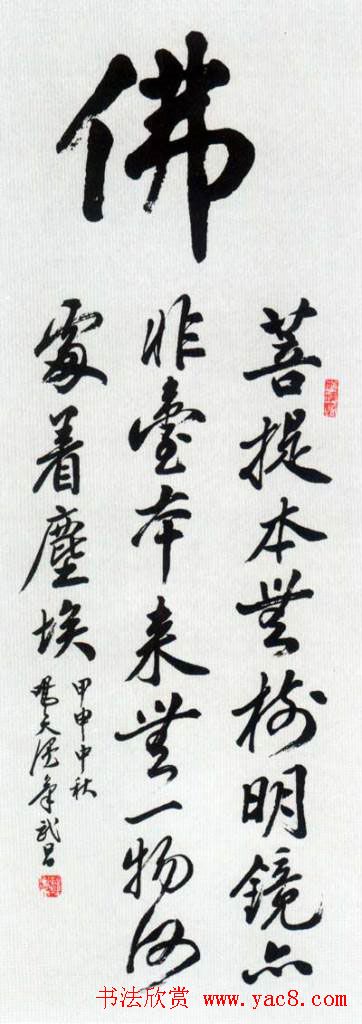 佛
菩提本無樹明鏡亦
非臺本来無一物何
處着塵埃
甲申中秋
書法欣赏 www.yac8.com